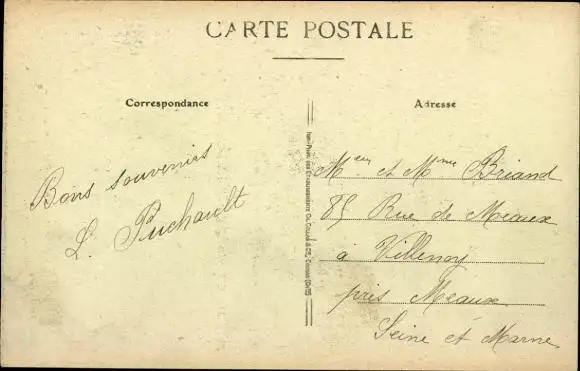 CARTE POSTALE
Correspondance
Adresse
Bons souvenirs
L. Puchault
Mr et Mme Briand
85 Rue de Meaux
à Villenoy
près Meaux
Seine et Marne